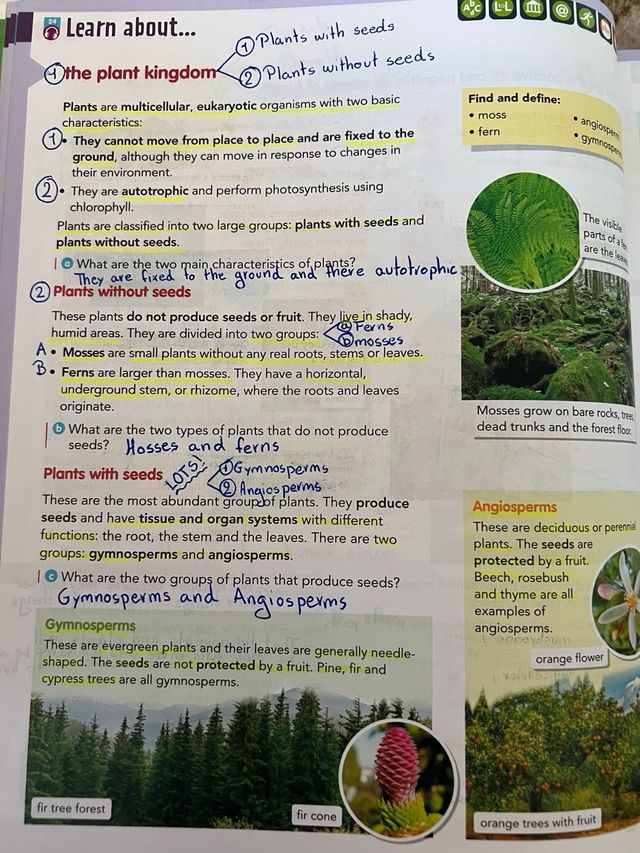 24
Learn about...
① Plants with seeds
the plant kingdom
② Plants without seeds
Plants are multicellular, eukaryotic organisms with two basic
characteristics:
① • They cannot move from place to place and are fixed to the
ground, although they can move in response to changes in
their environment.
② • They are autotrophic and perform photosynthesis using
chlorophyll.
Plants are classified into two large groups: plants with seeds and
plants without seeds.
a What are the two main characteristics of plants?
They are fixed to the ground and there autotrophic
② Plants without seeds
These plants do not produce seeds or fruit. They live in shady,
humid areas. They are divided into two groups:
ⓐ Ferns
ⓑ mosses
A • Mosses are small plants without any real roots, stems or leaves.
B • Ferns are larger than mosses. They have a horizontal,
underground stem, or rhizome, where the roots and leaves
originate.
b What are the two types of plants that do not produce
seeds? Mosses and ferns
Plants with seeds
LOTS!
① Gymnosperms
② Angiosperms
These are the most abundant group of plants. They produce
seeds and have tissue and organ systems with different
functions: the root, the stem and the leaves. There are two
groups: gymnosperms and angiosperms.
c What are the two groups of plants that produce seeds?
Gymnosperms and Angiosperms
Gymnosperms
These are evergreen plants and their leaves are generally needle-
shaped. The seeds are not protected by a fruit. Pine, fir and
cypress trees are all gymnosperms.
fir tree forest
fir cone
AbC
d
LoL
@
Find and define:
• moss
• fern
• angiosperm
• gymnosperm
The visible
parts of a
are the
Mosses grow on bare rocks, trees,
dead trunks and the forest floor.
Angiosperms
These are deciduous or perennial
plants. The seeds are
protected by a fruit.
Beech, rosebush
and thyme are all
examples of
angiosperms.
orange flower
orange trees with fruit